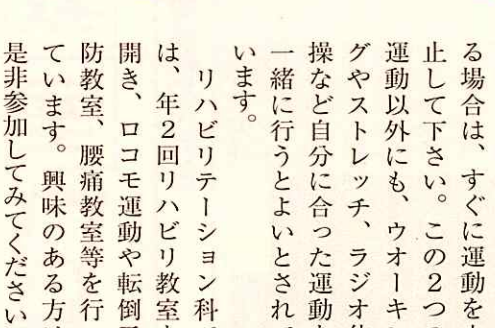 る場合は、すぐに運動を
止して下さい。この2つ
運動以外にも、ウオーキ
グやストレッチ、ラジオ
操など自分に合った運動
一緒に行うとよいとされ
います。
リハビリテーション科
は、年2回リハビリ教室
開き、ロコモ運動や転倒
防教室、腰痛教室等を行
ています。興味のある方
是非参加してみてください